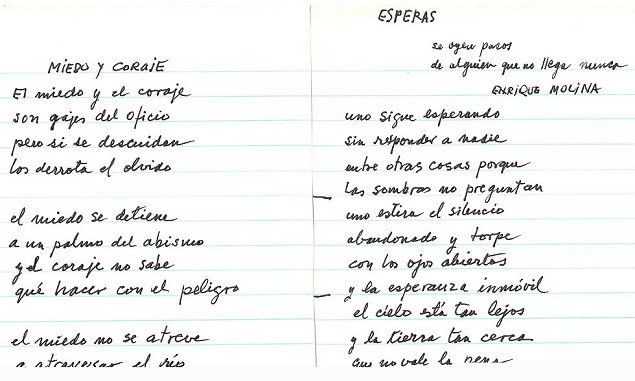 MIEDO Y CORAJE
El miedo y el coraje
son gajes del oficio
pero si se descuidan
los derrota el olvido
el miedo se detiene
a un palmo del abismo
y el coraje no sabe
qué hacer con el peligro
el miedo no se atreve
a atravesar el río
ESPERAS
se oyen pasos
de alguien que no llega nunca
ENRIQUE MOLINA
uno sigue esperando
sin responder a nadie
entre otras cosas porque
las sombras no preguntan
uno estira el silencio
abandonado y torpe
con los ojos abiertos
y la esperanza inmóvil
el cielo está tan lejos
y la tierra tan cerca
que no vale la pena